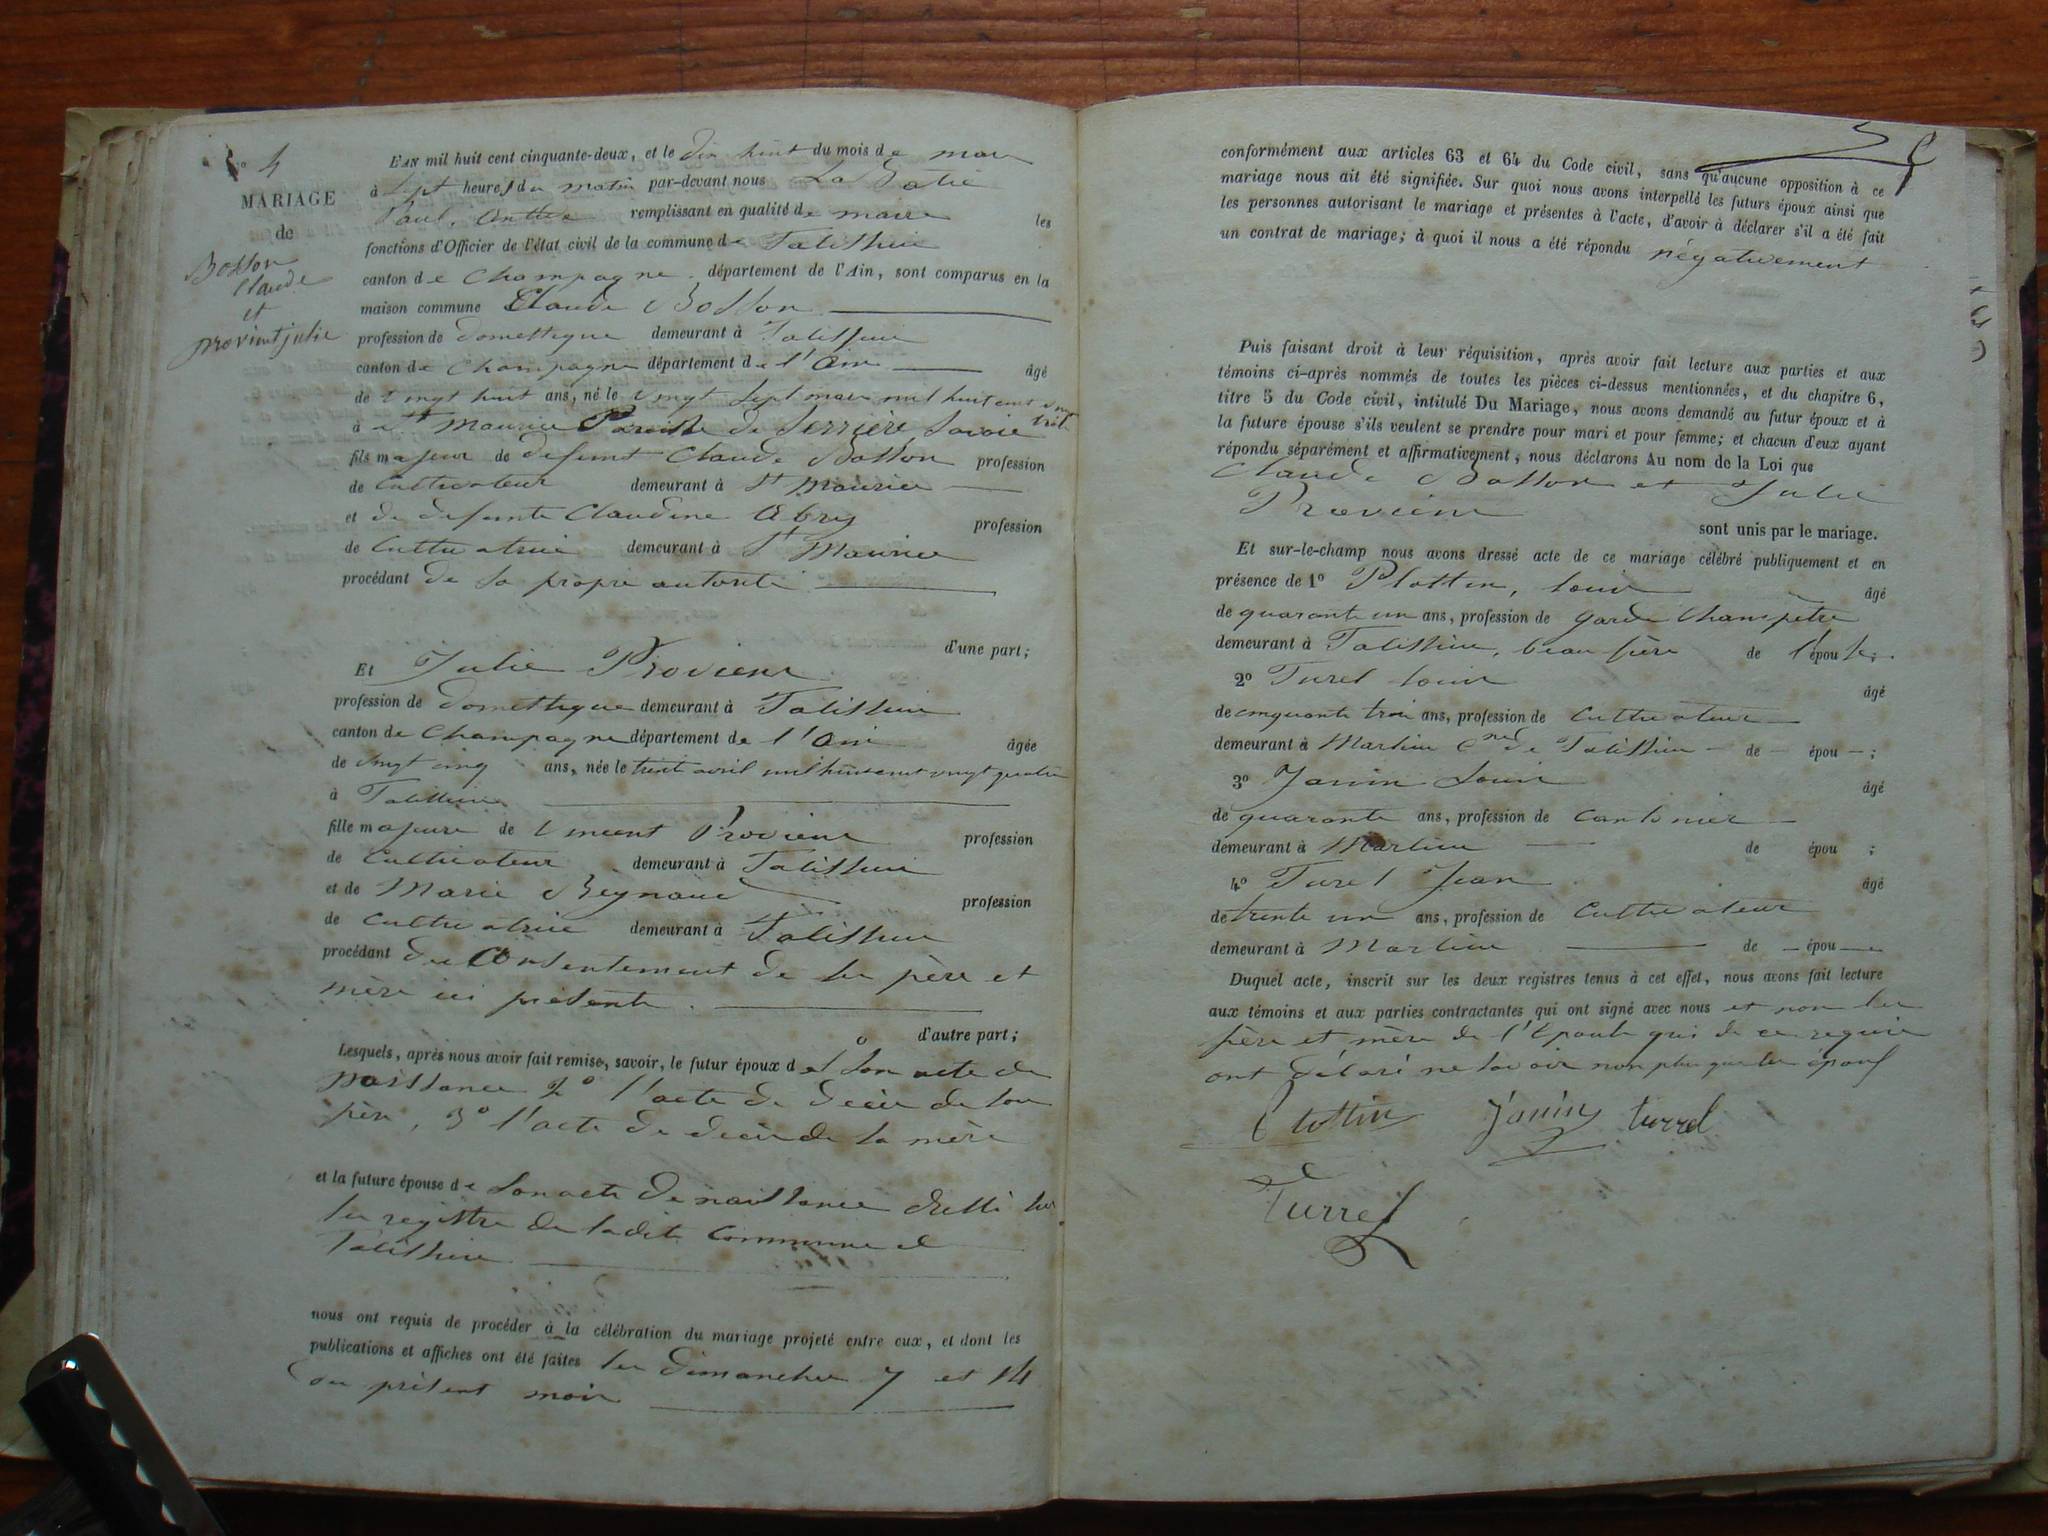 N° 4
MARIAGE
de
Bosson
Claude
et
provient julie
L'AN mil huit cent cinquante-deux, et le dix huit du mois de mars
à sept heures du matin par-devant nous La Batie
Paul, Anthe remplissant en qualité de maire les
fonctions d'Officier de l'état civil de la commune de Talissieu
canton de Champagne département de l'Ain, sont comparus en la
maison commune Claude Bosson
profession de domestique demeurant à Talissieu
canton de Champagne département de l'Ain âgé
de vingt huit ans, né le vingt sept mars mil huit cent vingt trois
à St maurice Paroisse de Serrière Savoie
fils majeur de defunt Claude Bosson profession
de Cultivateur demeurant à St maurice
et de defunte Claudine Abry profession
de Cultivatrice demeurant à St Maurice
procédant de sa propre autorité
d'une part;
Et Julie Provient
profession de domestique demeurant à Talissieu
canton de Champagne département de l'Ain âgée
de vingt cinq ans, née le trente avril mil huit cent vingt quatre
à Talissieu
fille majeure de Vincent Provient profession
de Cultivateur demeurant à Talissieu
et de Marie Reynaud profession
de Cultivatrice demeurant à Talissieu
procédant du Consentement de ses père et
mère ici présents.
d'autre part;
Lesquels, après nous avoir fait remise, savoir, le futur époux de 1° son acte de
naissance 2° l'acte de décès de son
père, 3° l'acte de décès de sa mère
et la future épouse de son acte de naissance dressé sur
les registres de ladite Commune de
Talissieu
nous ont requis de procéder à la célébration du mariage projeté entre eux, et dont les
publications et affiches ont été faites les dimanches 7 et 14
du présent mois
conformément aux articles 63 et 64 du Code civil, sans qu'aucune opposition à ce
mariage nous ait été signifiée. Sur quoi nous avons interpellé les futurs époux ainsi que
les personnes autorisant le mariage et présentes à l'acte, d'avoir à déclarer s'il a été fait
un contrat de mariage; à quoi il nous a été répondu négativement
Puis faisant droit à leur réquisition, après avoir fait lecture aux parties et aux
témoins ci-après nommés de toutes les pièces ci-dessus mentionnées, et du chapitre 6,
titre 5 du Code civil, intitulé Du Mariage, nous avons demandé au futur époux et à
la future épouse s'ils veulent se prendre pour mari et pour femme; et chacun d'eux ayant
répondu séparément et affirmativement, nous déclarons Au nom de la Loi que
Claude Bosson et Julie
Provient
sont unis par le mariage.
Et sur-le-champ nous avons dressé acte de ce mariage célébré publiquement et en
présence de 1° Plottin, louis âgé
de quarante un ans, profession de garde Champêtre
demeurant à Talissieu, beau frère de l'épouse;
2° Turel louis âgé
de cinquante trois ans, profession de Cultivateur
demeurant à Marlieu Cne de Talissieu de épou ;
3° Janin Louis âgé
de quarante ans, profession de Cantonier
demeurant à Marlieu de épou ;
4° Turel Jean âgé
de trente un ans, profession de Cultivateur
demeurant à Marlieu de épou
Duquel acte, inscrit sur les deux registres tenus à cet effet, nous avons fait lecture
aux témoins et aux parties contractantes qui ont signé avec nous et non les
père et mère de l'épouse qui de ce requis
ont déclaré ne savoir non plus que les époux
Plottin Janin turrel
Turrel